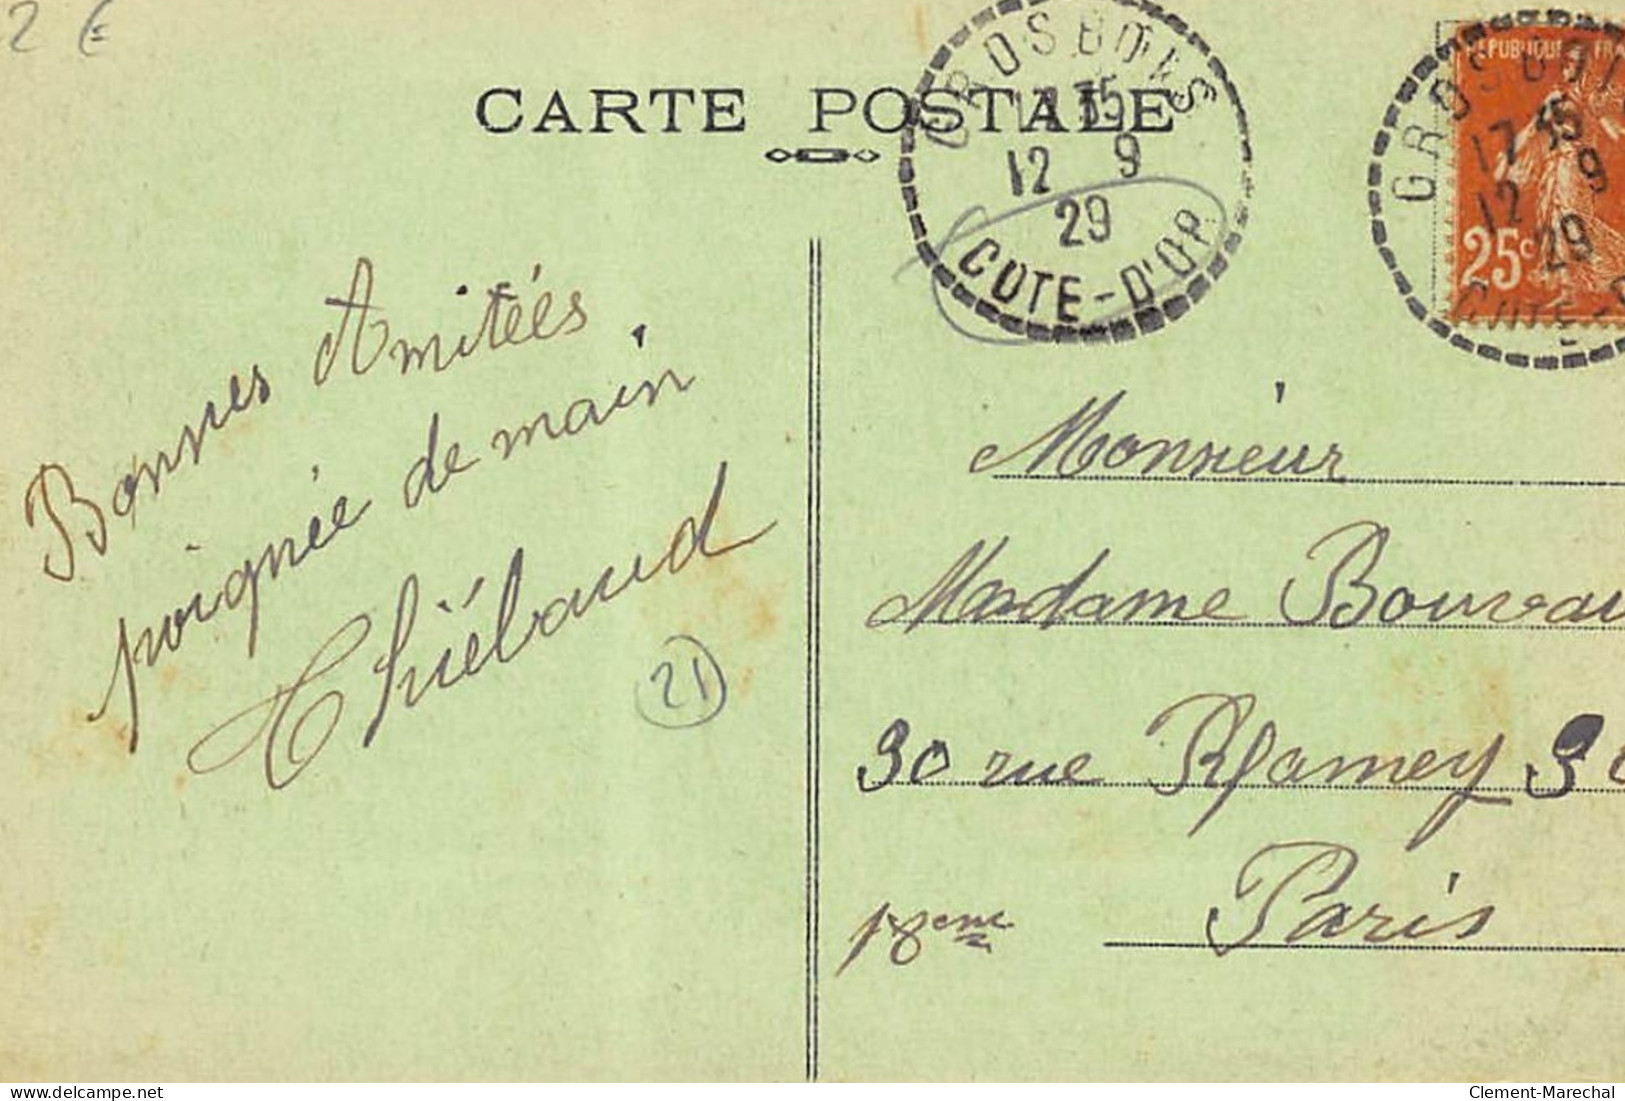 2 €
CARTE POSTALE
GROSBOIS
17 35
12 9
29
COTE-D'OR
REPUBLIQUE FRA
GROSBOI
17 35
12 9
29
25c
COTE-
Bonnes Amitées
poignée de main
Thiébaud
21
Monsieur
Madame Boureau
30 rue Ramey 30
18eme Paris
delcampe.net
Clement-Marechal